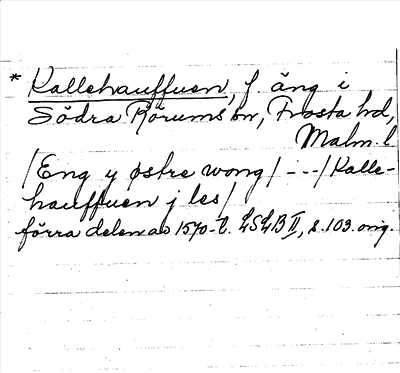 * Kallehauffuen, f. äng i
Södra Rörums sn, Frosta hd,
Malm. l
/Eng y østre wong/ ---/Kalle-
hauffuen j les/
förra delen av 1570-t. LSLB II, s. 103. orig.